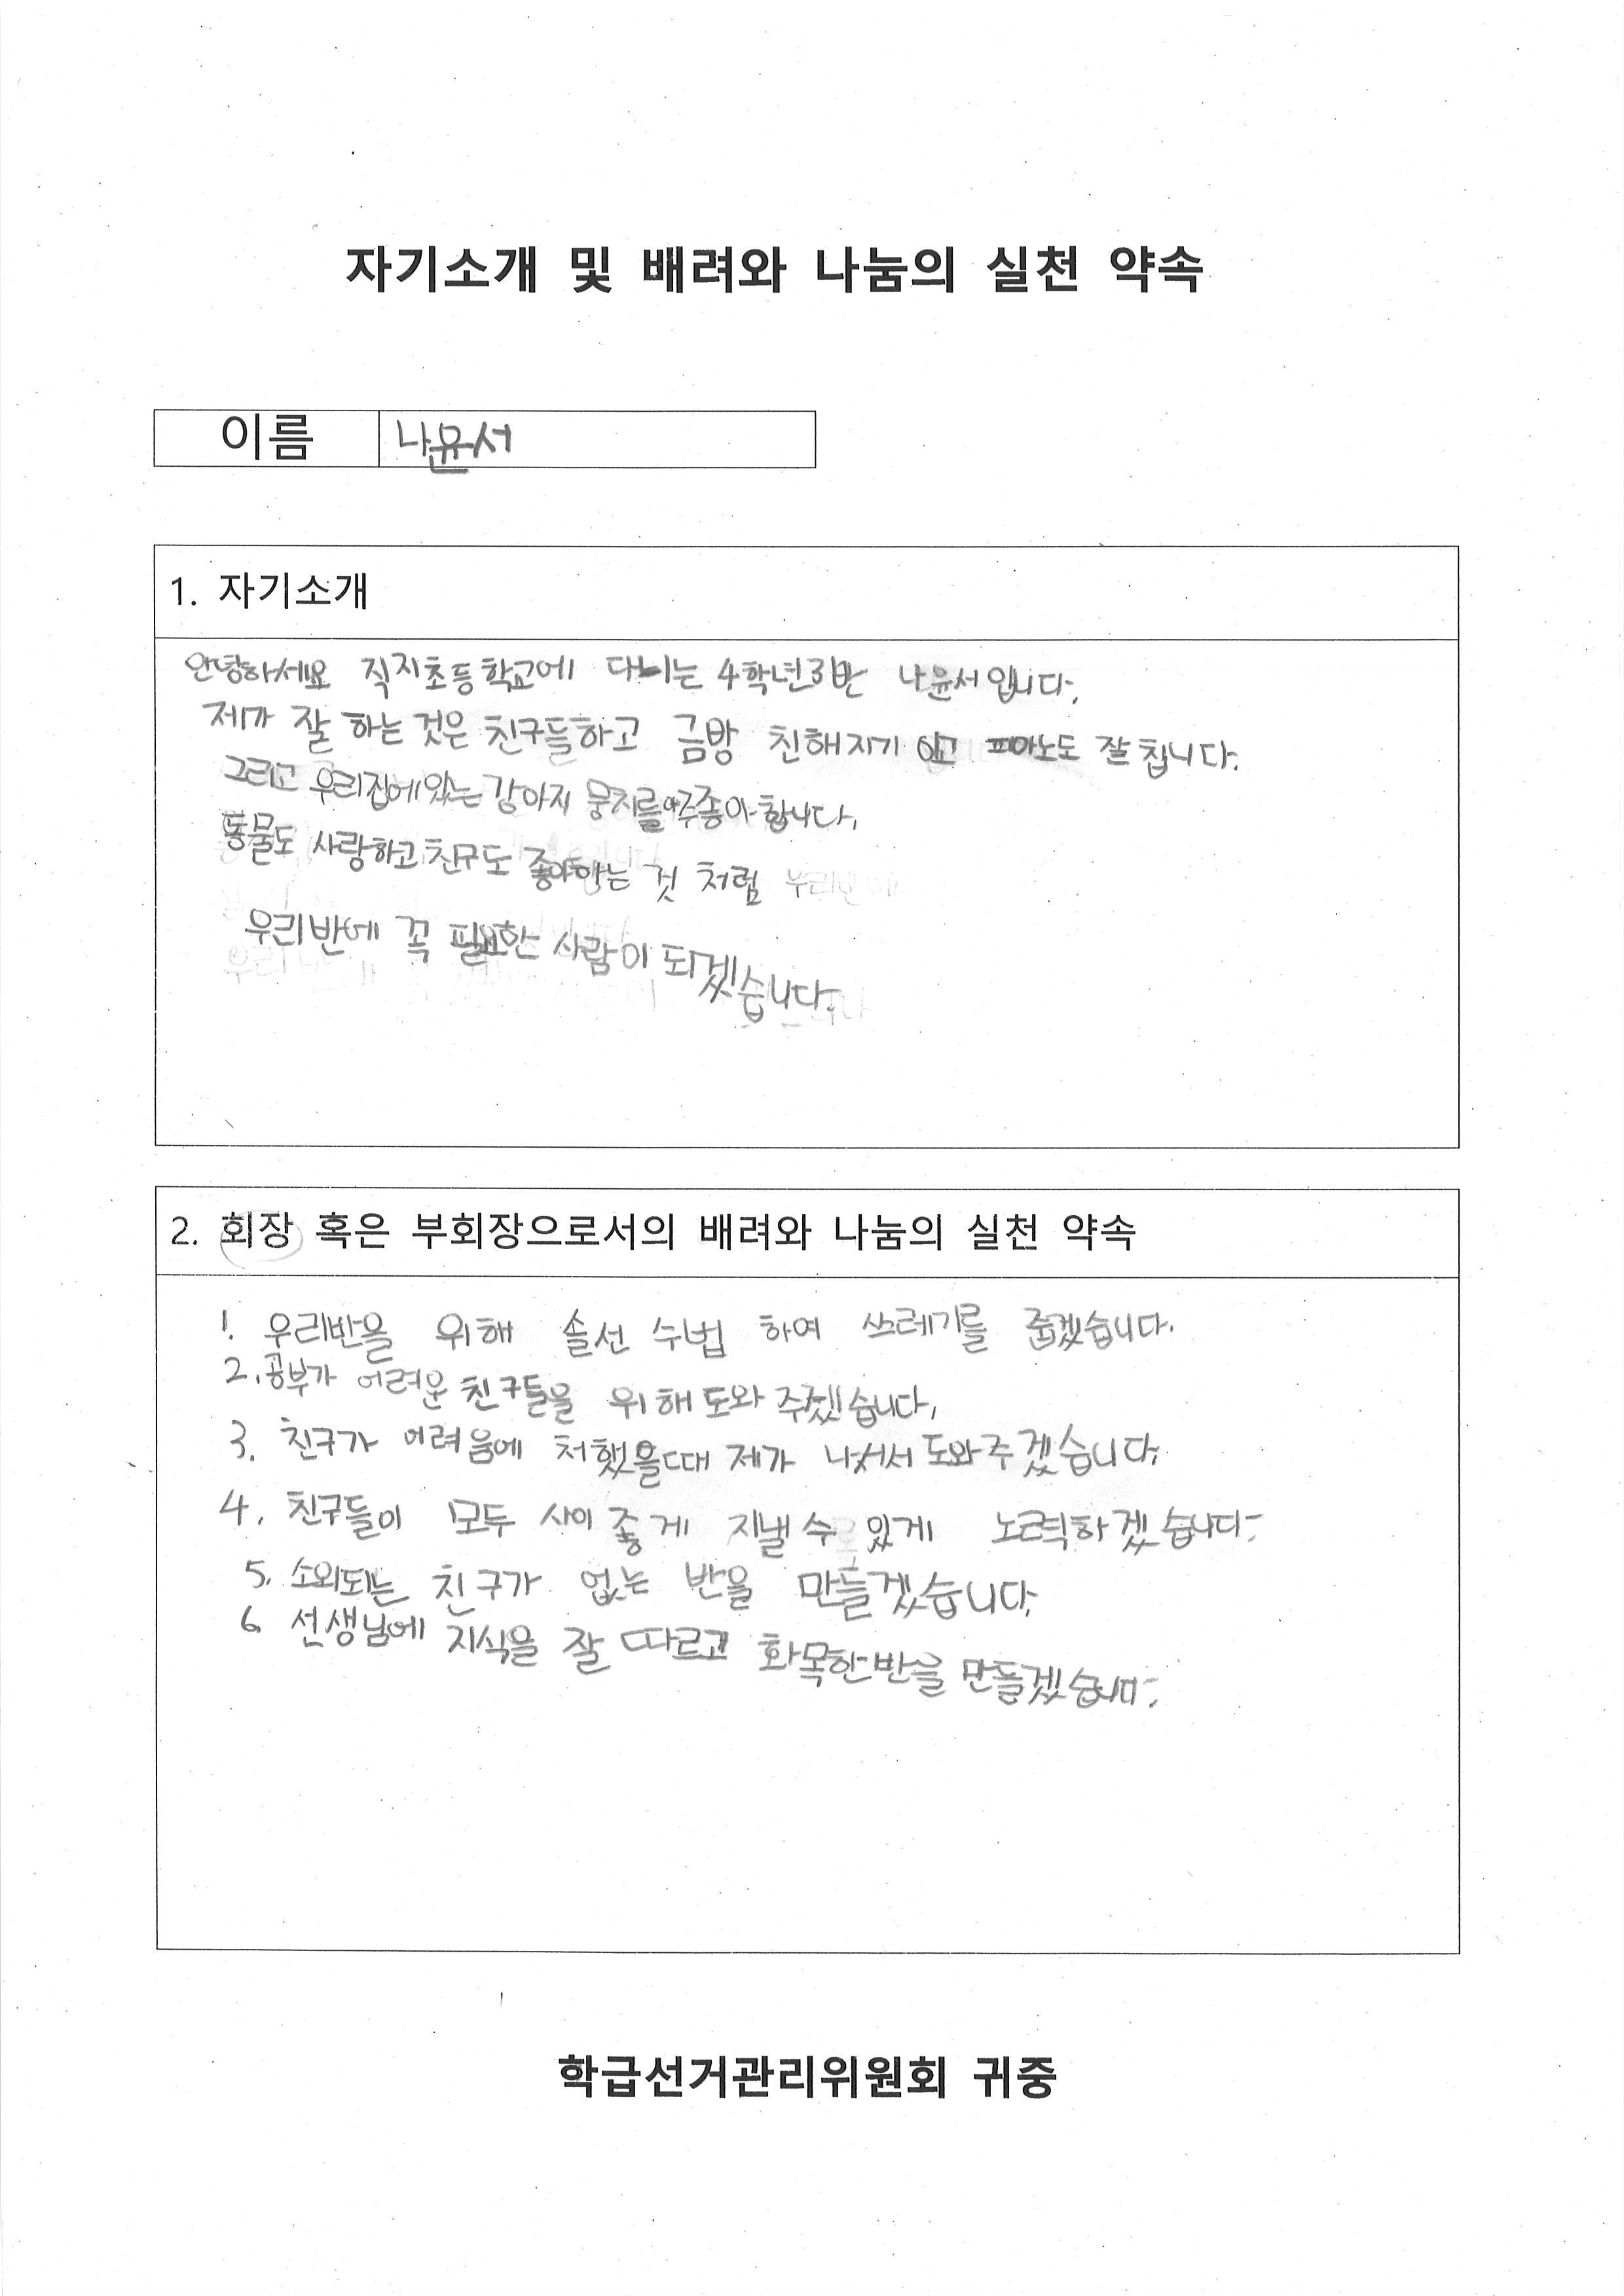 자기소개 및 배려와 나눔의 실천 약속
이름 나윤서
1. 자기소개
안녕하세요 직지초등학교에 다니는 4학년3반 나윤서입니다.
제가 잘 하는 것은 친구들하고 금방 친해지기 이고 피아노도 잘 칩니다.
그리고 우리집에있는 강아지 뭉치를 아주좋아합니다.
동물도 사랑하고 친구도 좋아하는 것 처럼
우리반에 꼭 필요한 사람이 되겠습니다.
2. 회장 혹은 부회장으로서의 배려와 나눔의 실천 약속
1. 우리반을 위해 솔선 수법 하여 쓰레기를 줍겠습니다.
2. 공부가 어려운 친구들을 위해 도와 주겠습니다.
3. 친구가 어려움에 처했을때 제가 나서서 도와주겠습니다.
4. 친구들이 모두 사이 좋게 지낼 수 있게 노력하겠습니다.
5. 소외되는 친구가 없는 반을 만들겠습니다.
6 선생님에 지식을 잘 따르고 화목한반을 만들겠습니다.
학급선거관리위원회 귀중